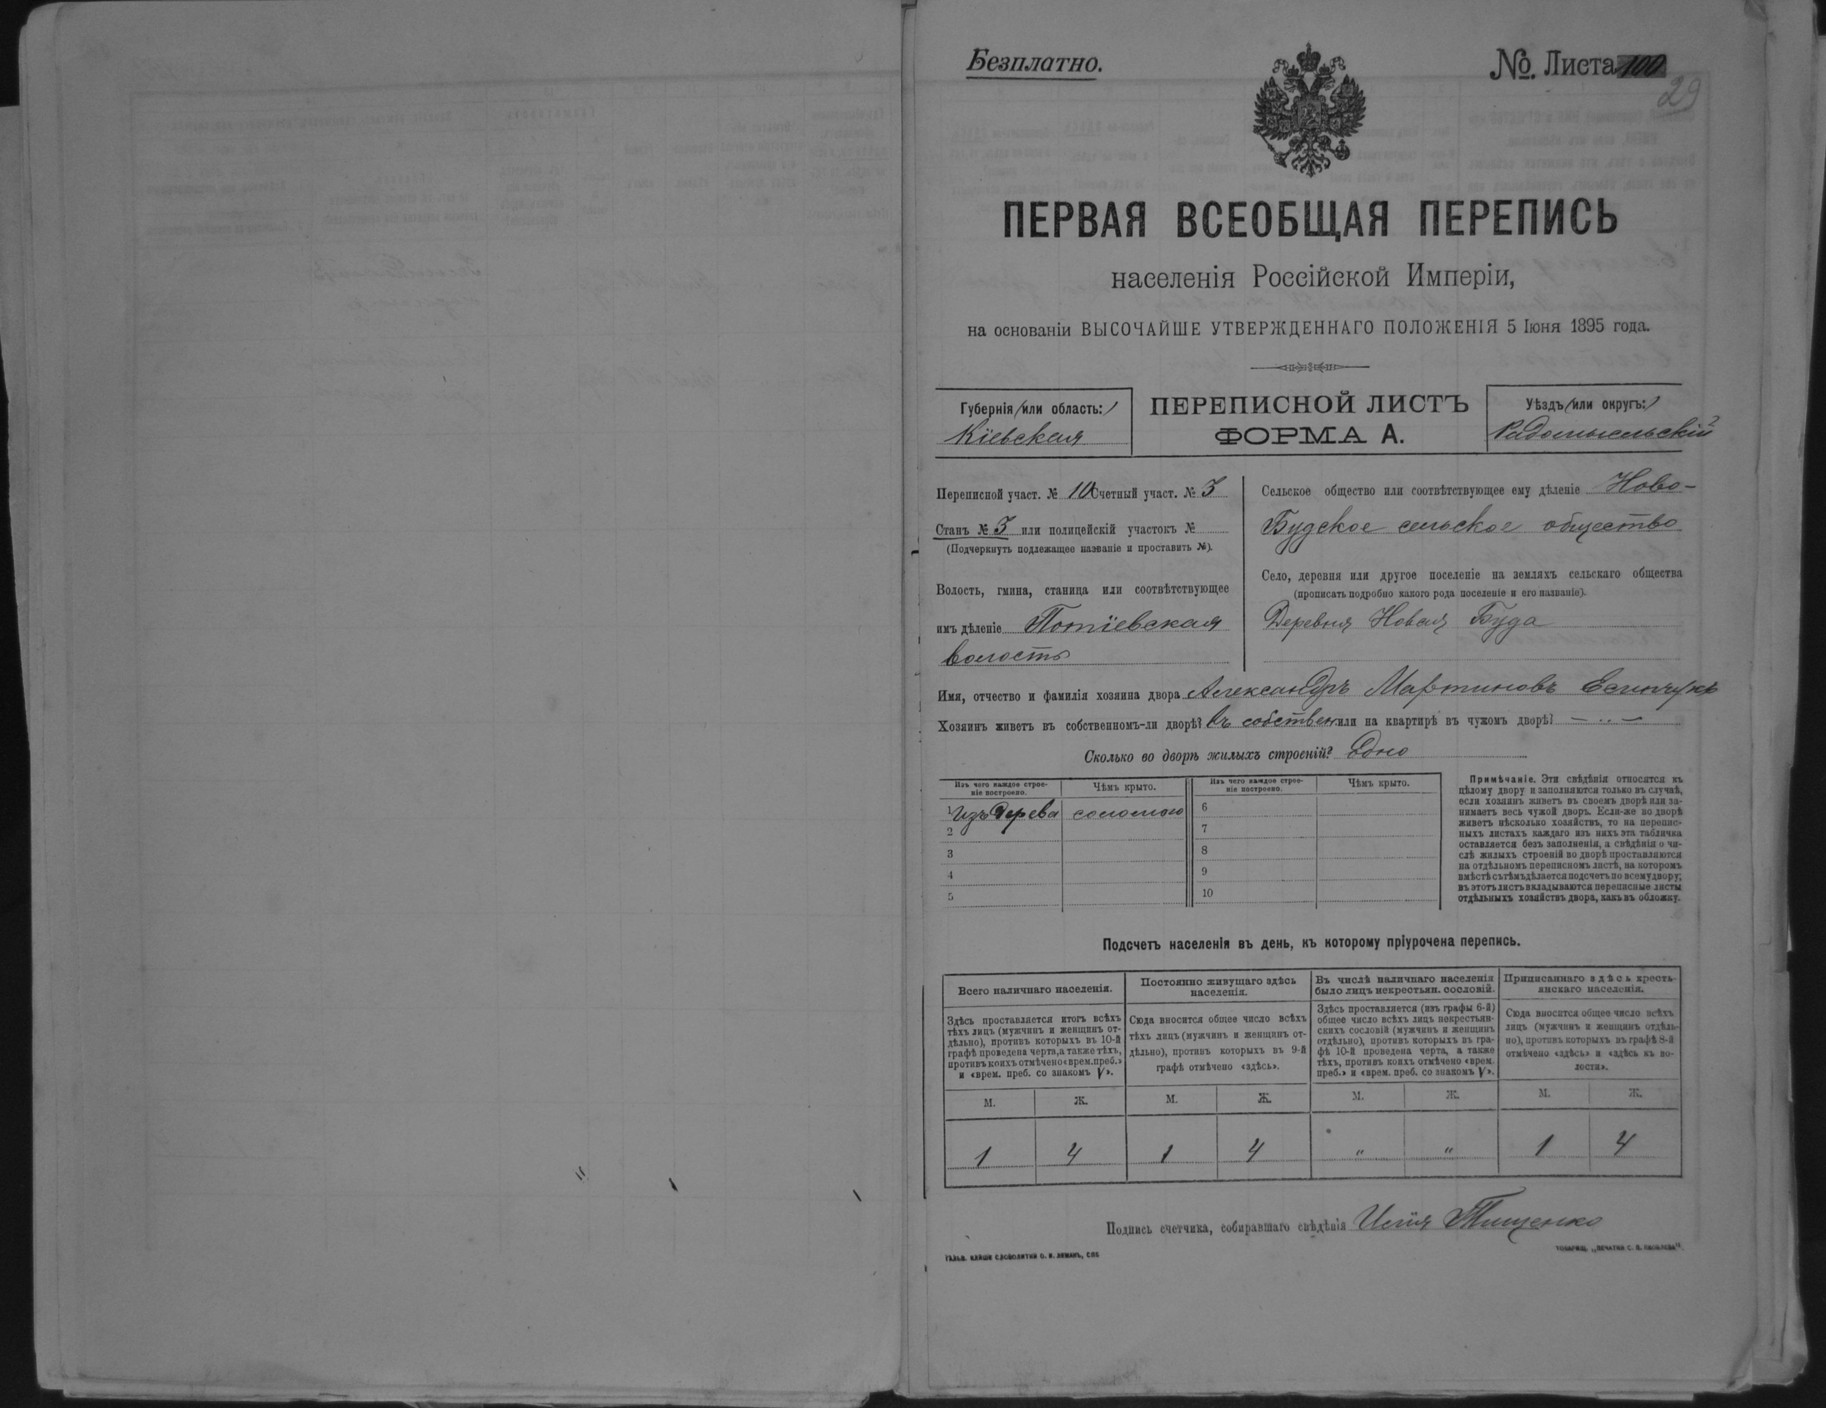 Безплатно.
№ Листа 100
29
ПЕРВАЯ ВСЕОБЩАЯ ПЕРЕПИСЬ
населенія Россійской Имперіи,
на основаніи ВЫСОЧАЙШЕ УТВЕРЖДЕННАГО ПОЛОЖЕНІЯ 5 Іюня 1895 года.
Губернія (или область:)
Кіевская
ПЕРЕПИСНОЙ ЛИСТЪ
ФОРМА А.
Уѣздъ (или округъ:)
Радомысльскій
Переписной участ. № 10 Счетный участ. № 3
Станъ № 3 или полицейскій участокъ №
(Подчеркнуть подлежащее названіе и проставить №).
Волость, гмина, станица или соотвѣтствующее
имъ дѣленіе Потіевская
волость
Сельское общество или соотвѣтствующее ему дѣленіе Ново-
Будское сельское общество
Село, деревня или другое поселеніе на земляхъ сельскаго общества
(прописать подробно какого рода поселеніе и его названіе).
Деревня Новая Буда
Имя, отчество и фамилія хозяина двора Александръ Мартиновъ Есипчукъ
Хозяинъ живетъ въ собственномъ-ли дворѣ? въ собствен или на квартирѣ въ чужомъ дворѣ? — .. —
Сколько во дворѣ жилыхъ строеній? Одно
Изъ чего каждое строе-
ніе построено.
Чѣмъ крыто.
Изъ чего каждое строе-
ніе построено.
Чѣмъ крыто.
1 изъ дерева соломою
2
3
4
5
6
7
8
9
10
Примѣчаніе. Эти свѣдѣнія относятся къ
цѣлому двору и заполняются только въ случаѣ,
если хозяинъ живетъ въ своемъ дворѣ или за-
нимаетъ весь чужой дворъ. Если-же во дворѣ
живетъ нѣсколько хозяйствъ, то на перепис-
ныхъ листахъ каждаго изъ нихъ эта табличка
оставляется безъ заполненія, а свѣдѣнія о чи-
слѣ жилыхъ строеній во дворѣ проставляются
на отдѣльномъ переписномъ листѣ, на которомъ
вмѣстѣ съ тѣмъ дѣлается подсчетъ по всему двору;
въ этотъ листъ вкладываются переписные листы
отдѣльныхъ хозяйствъ двора, какъ въ обложку.
Подсчетъ населенія въ день, къ которому пріурочена перепись.
Всего наличнаго населенія.
Здѣсь проставляется итогъ всѣхъ
тѣхъ лицъ (мужчинъ и женщинъ от-
дѣльно), противъ которыхъ въ 10-й
графѣ проведена черта, а также тѣхъ,
противъ коихъ отмѣчено «врем. преб.»
и «врем. преб. со знакомъ V».
Постоянно живущаго здѣсь
населенія.
Сюда вносится общее число всѣхъ
тѣхъ лицъ (мужчинъ и женщинъ от-
дѣльно), противъ которыхъ въ 9-й
графѣ отмѣчено «здѣсь».
Въ числѣ наличнаго населенія
было лицъ некрестьян. сословій.
Здѣсь проставляется (изъ графы 6-й)
общее число всѣхъ лицъ некрестьян-
скихъ сословій (мужчинъ и женщинъ
отдѣльно), противъ которыхъ въ гра-
фѣ 10-й проведена черта, а также
тѣхъ, противъ коихъ отмѣчено «врем.
преб.» и «врем. преб. со знакомъ V».
Приписаннаго здѣсь кресть-
янскаго населенія.
Сюда вносится общее число всѣхъ
лицъ (мужчинъ и женщинъ отдѣль-
но), противъ которыхъ въ графѣ 8-й
отмѣчено «здѣсь» и «здѣсь къ во-
лости».
М. Ж. М. Ж. М. Ж. М. Ж.
1 4 1 4 " " 1 4
Подпись счетчика, собиравшаго свѣдѣнія Илія Тищенко